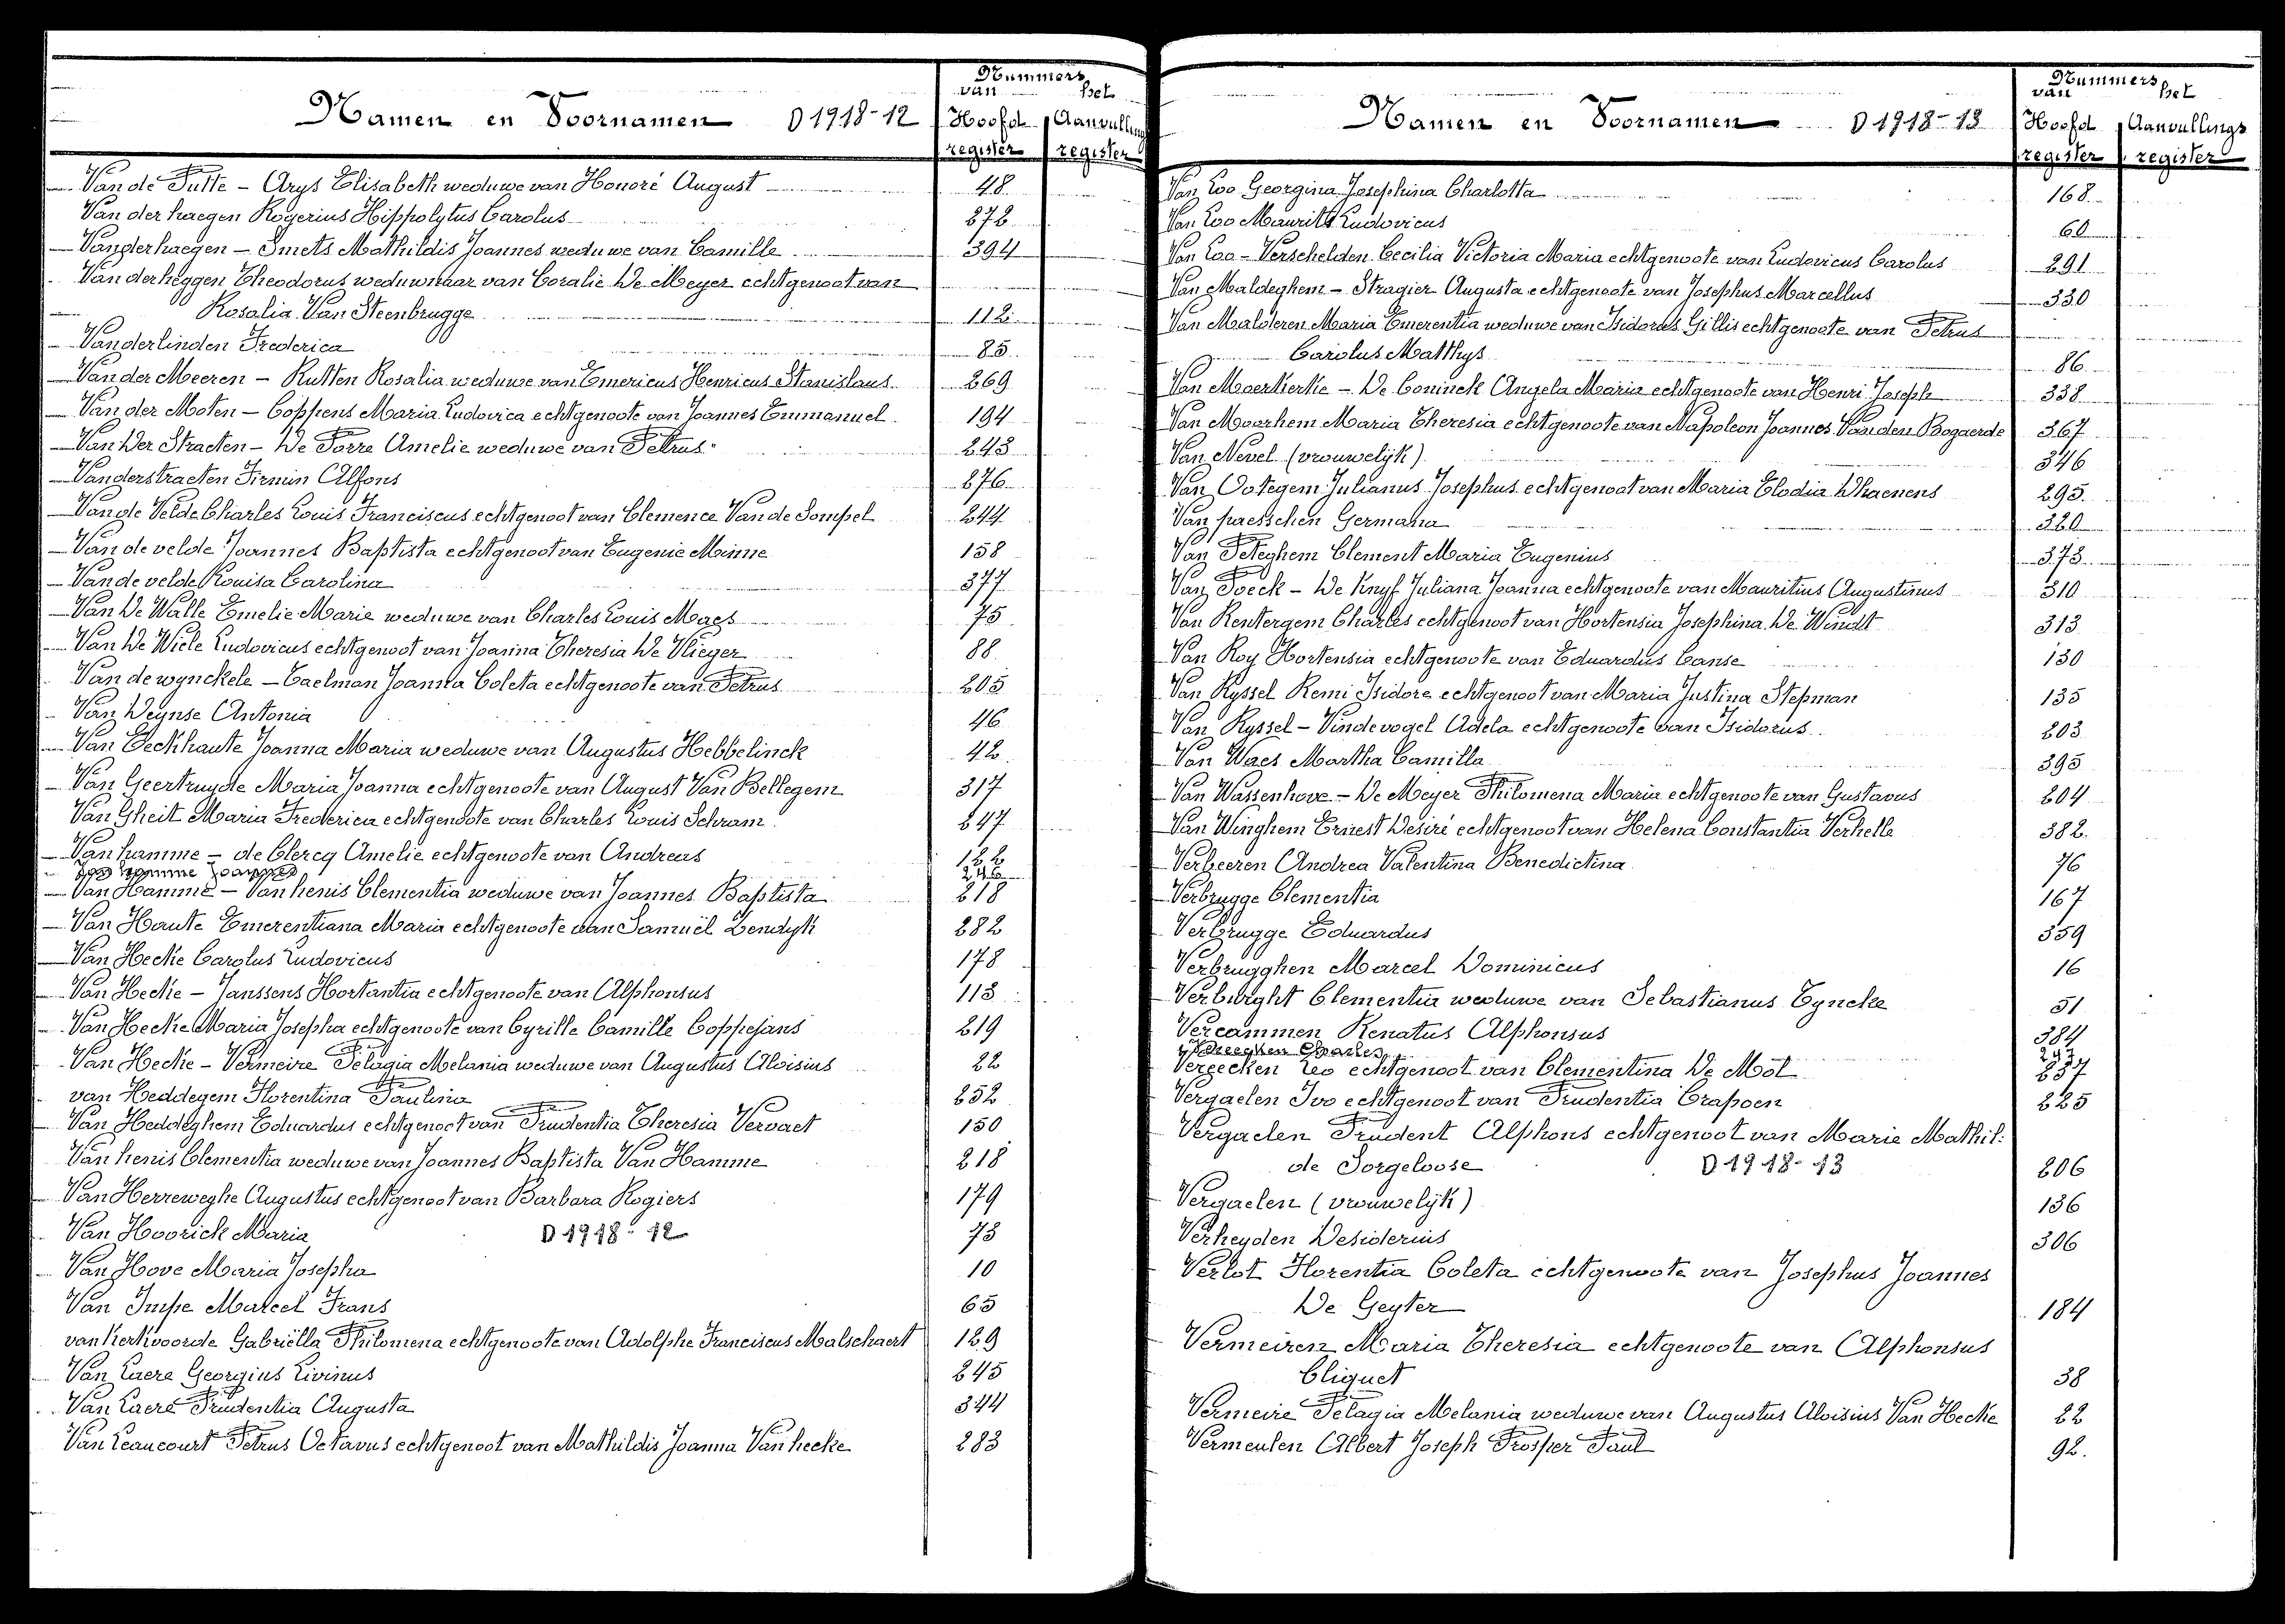 Nummers
van het
Namen en Voornamen D 1918-12 Hoofd Aanvullings
register register
Van de Putte - Arys Elisabeth weduwe van Honoré August 48
Van der haegen Rogerius Hippolytus Carolus 272
Vanderhaegen - Smets Mathildis Joannes weduwe van Camille 394
Van derheggen Theodorus weduwnaar van Coralie De Meyer echtgenoot van
Rosalia Van Steenbrugge 112
Vanderlinden Frederica 85
Van der Meeren - Rutten Rosalia weduwe van Emericus Henricus Stanislaus 269
Van der Moten - Coppens Maria Ludovica echtgenoote van Joannes Emmanuel 194
Van Der Straeten - De Porre Amelie weduwe van Petrus 243
Vanderstraeten Firmin Alfons 276
Van de Velde Charles Louis Franciscus echtgenoot van Clemence Van de Sompel 244
Van de velde Joannes Baptista echtgenoot van Eugenie Minne 158
Van de velde Louisa Carolina 377
Van De Walle Emelie Marie weduwe van Charles Louis Maes 75
Van De Wiele Ludovicus echtgenoot van Joanna Theresia De Vlieger 88
Van de wynckele - Taelman Joanna Coleta echtgenoote van Petrus 205
Van Deynse Antonia 46
Van Eeckhaute Joanna Maria weduwe van Augustus Hebbelinck 42
Van Geertruyde Maria Joanna echtgenoote van August Van Bellegem 317
Van Gheit Maria Frederica echtgenoote van Charles Louis Schram 247
Van hamme - de Clercq Amelie echtgenoote van Andreas 122
Van hamme Joannes 246
Van Hamme - Van henis Clementia weduwe van Joannes Baptista 218
Van Haute Emerentiana Maria echtgenoote van Samuël Lendyk 282
Van Hecke Carolus Ludovicus 178
Van Hecke - Janssens Hortantia echtgenoote van Alphonsus 113
Van Hecke Maria Josepha echtgenoote van Cyrille Camille Coppejans 219
Van Hecke - Vermeire Pelagia Melania weduwe van Augustus Aloisius 22
van Heddegem Florentina Paulina 252
Van Heddeghem Eduardus echtgenoot van Prudentia Theresia Vervaet 150
Van henis Clementia weduwe van Joannes Baptista Van Hamme 218
Van Herreweghe Augustus echtgenoot van Barbara Rogiers 179
Van Hoorick Maria D 1918-12 73
Van Hove Maria Josepha 10
Van Impe Marcel Frans 65
van Kerkvoorde Gabriëlla Philomena echtgenoote van Adolphe Franciscus Malschaert 129
Van Laere Georgius Livinus 245
Van Laere Prudentia Augusta 344
Van Leaucourt Petrus Octavus echtgenoot van Mathildis Joanna Van hecke 283
Nummers
van het
Namen en Voornamen D 1918-13 Hoofd Aanvullings
register register
Van Loo Georgina Josephina Charlotta 168
Van Loo Maurits Ludovicus 60
Van Loo - Verschelden Cecilia Victoria Maria echtgenoote van Ludovicus Carolus 291
Van Maldeghem - Stragier Augusta echtgenoote van Josephus Marcellus 330
Van Malderen Maria Emerentia weduwe van Isidorus Gillis echtgenoote van Petrus
Carolus Matthys 86
Van Maerkerke - De Coninck Angela Maria echtgenoote van Henri Joseph 338
Van Moorhem Maria Theresia echtgenoote van Napoleon Joannes Van den Bogaerde 367
Van Nevel (vrouwelijk) 346
Van Ootegem Julianus Josephus echtgenoot van Maria Elodia Dhaenens 295
Van paesschen Germana 320
Van Peteghem Clement Maria Eugenius 373
Van Poeck - De Knyf Juliana Joanna echtgenoote van Mauritius Augustinus 310
Van Rentergem Charles echtgenoot van Hortensia Josephina De Windt 313
Van Roy Hortensia echtgenoote van Eduardus Canse 130
Van Ryssel Remi Isidore echtgenoot van Maria Justina Stepman 135
Van Ryssel - Vindevogel Adela echtgenoote van Isidorus 203
Van Waes Martha Camilla 395
Van Wassenhove - De Meyer Philomena Maria echtgenoote van Gustavus 204
Van Winghem Ernest Desiré echtgenoot van Helena Constantia Verhelle 382
Verbeeren Andrea Valentina Benedictina 76
Verbrugge Clementia 167
Verbrugge Eduardus 359
Verbrugghen Marcel Dominicus 16
Verburght Clementia weduwe van Sebastianus Tyncke 51
Vercammen Renatus Alphonsus 384
Vereecken Charles 293
Vereecken Leo echtgenoot van Clementina De Mol 237
Vergaelen Ivo echtgenoot van Prudentia Crapoen 225
Vergaelen Prudent Alphons echtgenoot van Marie Mathil:
de Sorgeloose D 1918-13 206
Vergaelen (vrouwelijk) 136
Verheyden Desiderius 306
Verlot Florentia Coleta echtgenoote van Josephus Joannes
De Geyter 184
Vermeiren Maria Theresia echtgenoote van Alphonsus
Cliquet 38
Vermeire Pelagia Melania weduwe van Augustus Aloisius Van Hecke 22
Vermeulen Albert Joseph Prosper Paul 92.